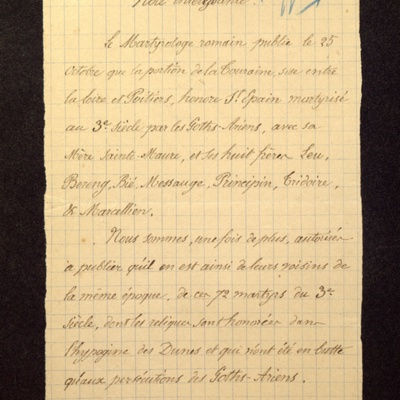 Note
Le Martyrologe romain publie le 25
Octobre que la portion de la Touraine, sise entre
la Loire et Poitiers, honore St. Epain martyrisé
au 3e Siècle par les Goths-Ariens, avec sa
Mère Sainte-Maure, et ses huit frères Leu,
Bereng, Bié, Messauge, Principin, Tridoire,
& Marcellien.
Nous sommes, une fois de plus, autorisés
à publier qu'il en est ainsi de leurs voisins de
la même époque, de ces 72 martyrs du 3e
Siècle, dont les reliques sont honorées dans
l'hypogine des Dunes et qui n'ont été en butte
qu'aux persécutions des Goths-Ariens.